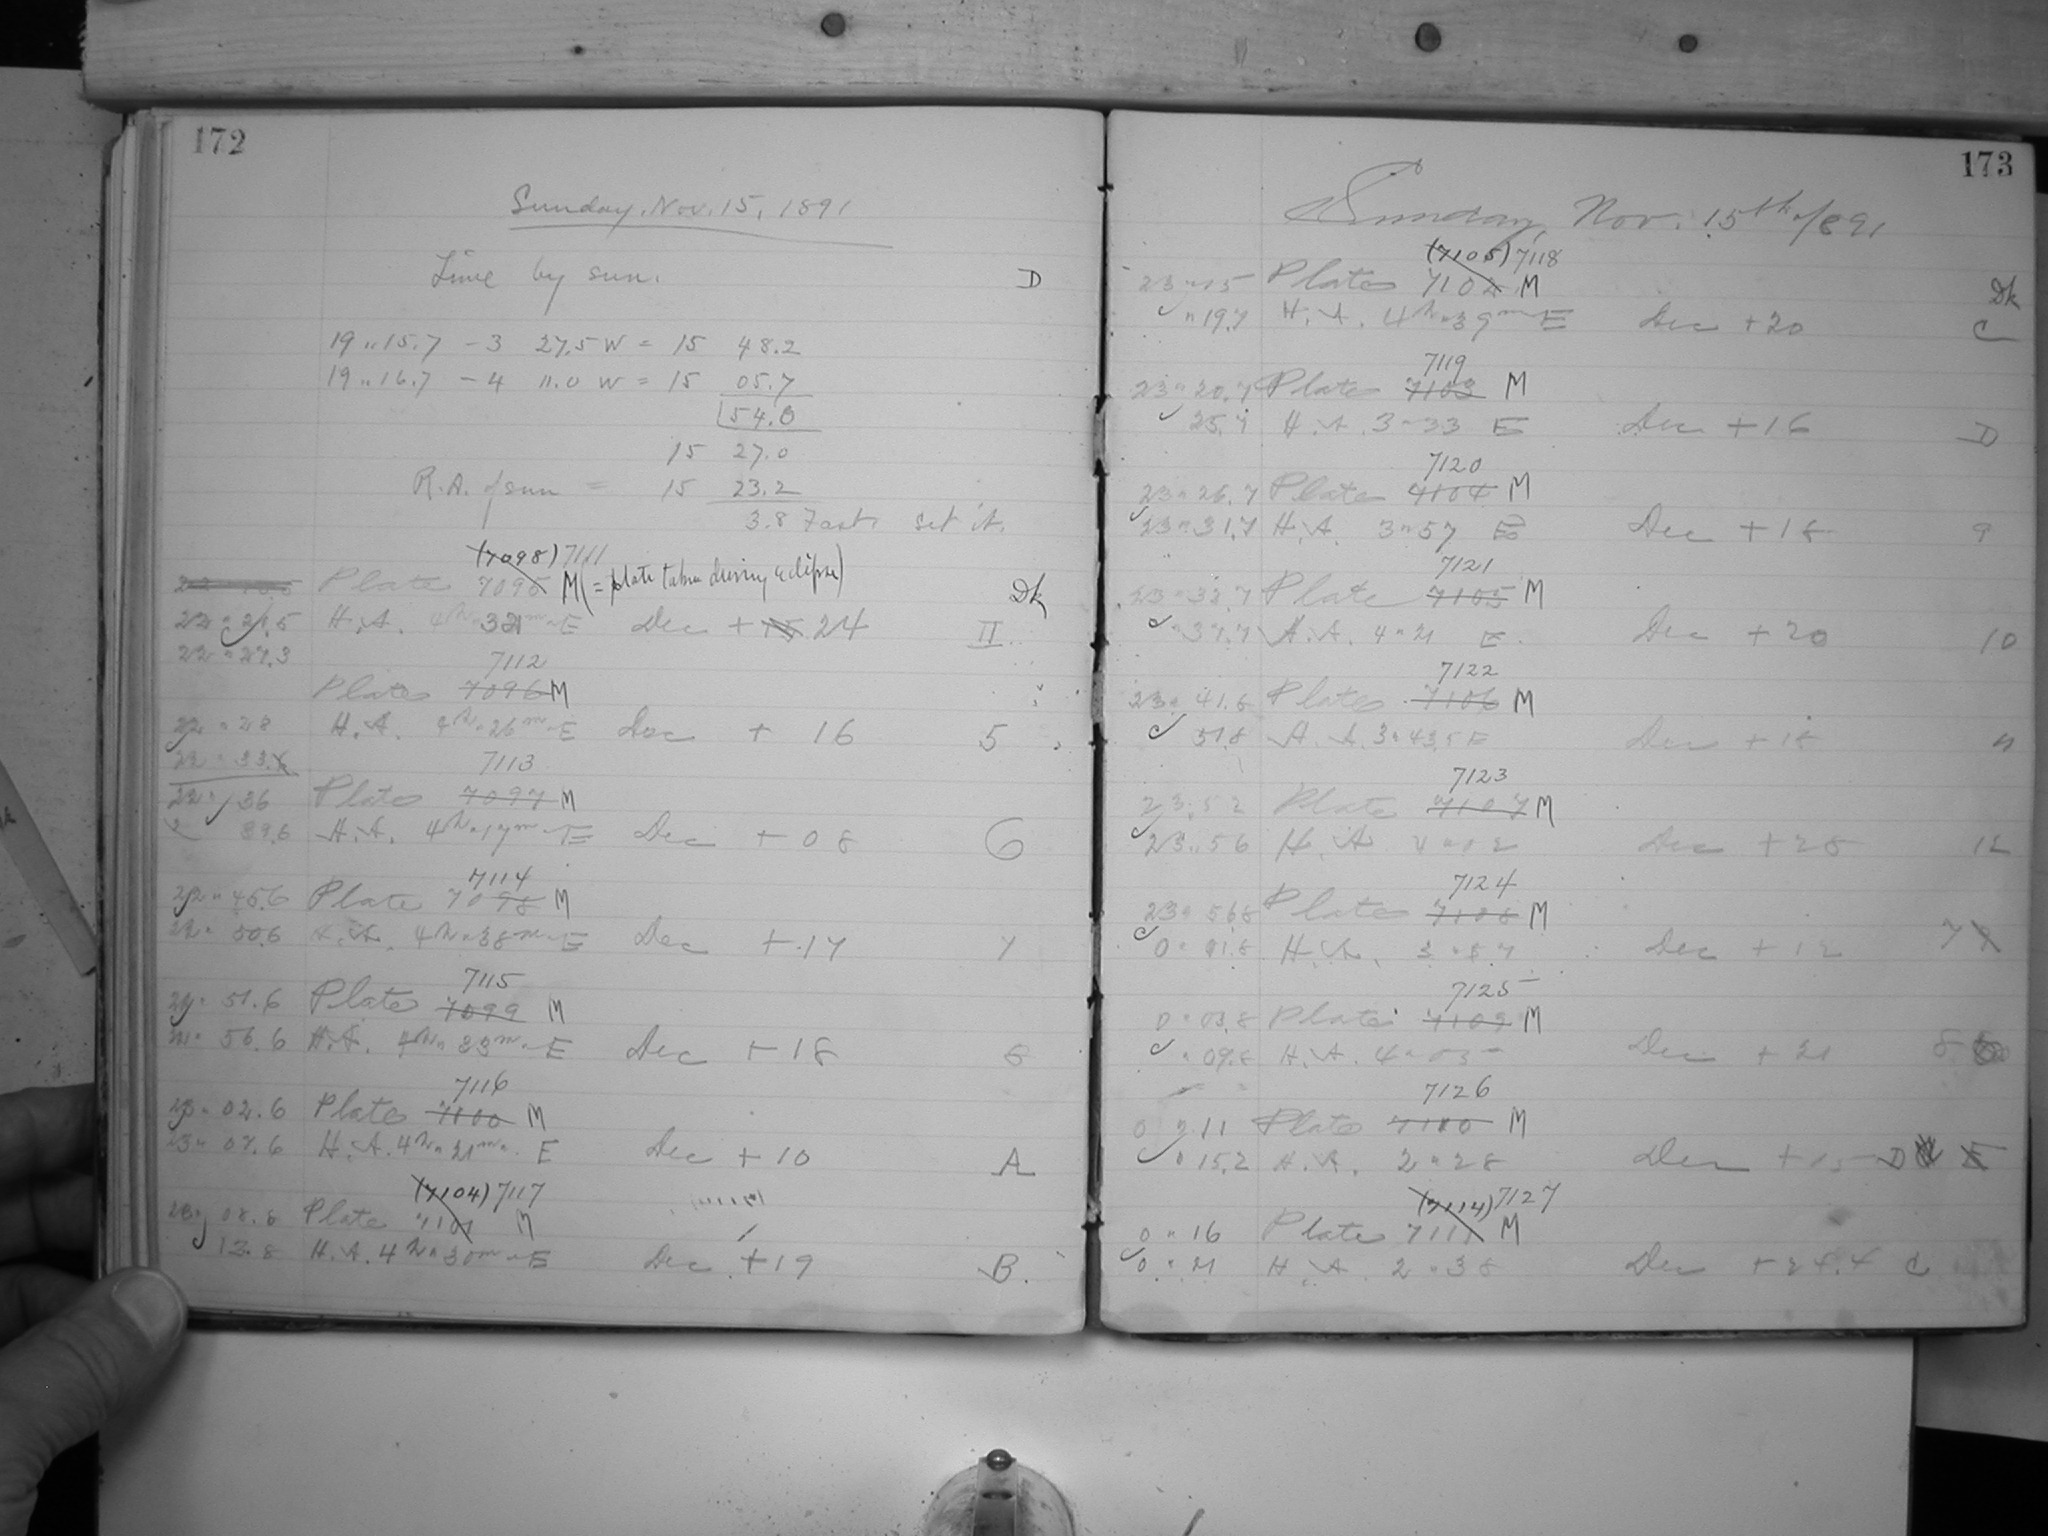 172
Sunday, Nov. 15, 1891
Time by sun. D
19 " 15.7 - 3 27.5 W = 15 48.2
19 " 16.7 - 4 11.0 W = 15 05.7
54.0
15 27.0
R.A. of sun = 15 23.2
3.8 Fast set it.
(7098) 7111
Plate 7095 M (= plate taken during eclipse) Dk
22 " 21.5 H.A. 4h " 32m E Dec + 15 24 II
22 " 27.3
7112
Plate 7096 M
22 " 28 H.A. 4h " 26m E Dec + 16 5
22 " 33.
7113
22 " 36 Plate 7097 M
39.6 H.A. 4h " 17m E Dec + 08 6
7114
22 " 45.6 Plate 7098 M
22 " 50.6 H.A. 4h " 38m E Dec + 17 7
7115
22 " 51.6 Plate 7099 M
22 " 56.6 H.A. 4h " 33m E Dec + 18
7116
23 " 02.6 Plate 7100 M
23 " 07.6 H.A. 4h " 21m E Dec + 10 A
(7104) 7117
23 " 08.8 Plate 7101 M
13.8 H.A. 4h " 30m E Dec + 19 B.
173
Sunday, Nov. 15th, 1891
(7105) 7118
23 " 15 Plate 7102 M Dk
" 19.7 H.A. 4h " 39m E Dec + 20 C
7119
23 " 20.7 Plate 7103 M
25.7 H.A. 3 " 33 E Dec + 16 D
7120
23 " 26.7 Plate 7104 M
23 " 31.7 H.A. 3 " 57 E Dec + 18 9
7121
23 " 32.7 Plate 7105 M
" 37.7 H.A. 4 " 21 E. Dec + 20 10
7122
23 " 41.8 Plate 7106 M
51.8 H.A. 3 " 43.5 E Dec + 18 11
7123
23 " 52 Plate 7107 M
23 " 56 H.A. 4 " 02 Dec + 28 12
7124
23 " 56.8 Plate 7108 M
0 " 01.8 H.A. 3 " 57 Dec + 12 7
7125
0 " 03.8 Plate 7109 M
" 09.8 H.A. 4 " 05 Dec + 21 8
7126
0 " 11 Plate 7110 M
" 15.2 H.A. 2 " 28 Dec + 15 D
(7114) 7127
0 " 16 Plate 7111 M
0 " 21 H.A. 2 " 38 Dec + 24.4 C